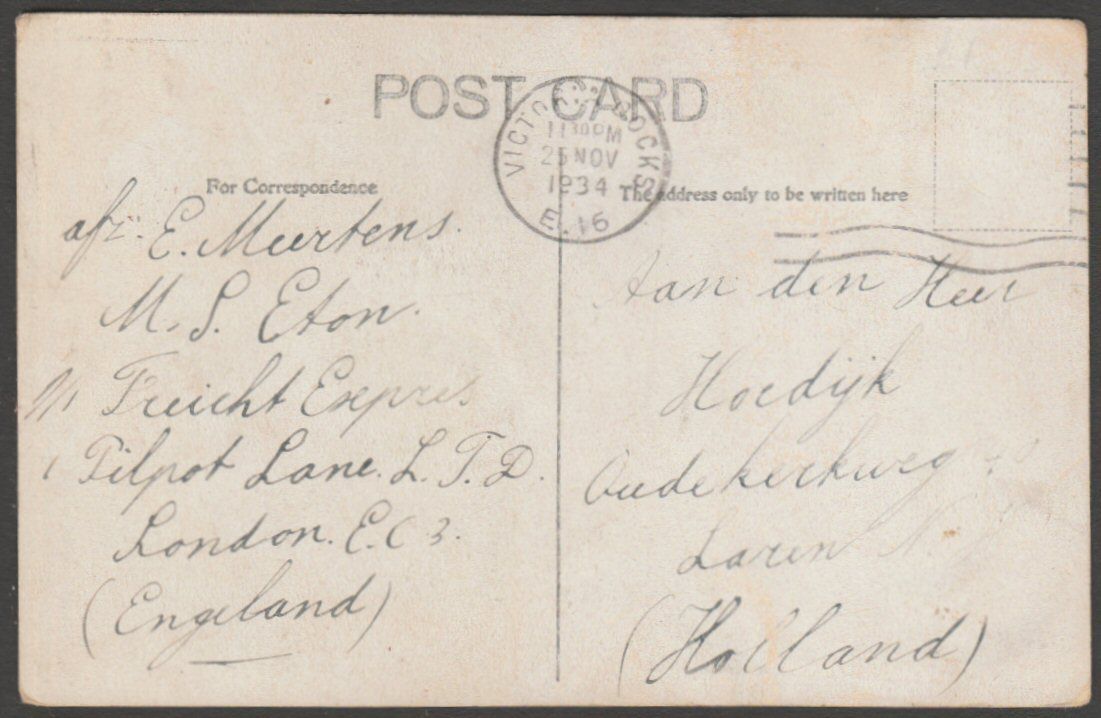 POST CARD
VICTORIA DOCKS
11 30 PM
25 NOV
1934
E.16
For Correspondence
afz. E. Meertens.
M. S. Eton.
Freicht Expres
Pilpot Lane. L.T.D.
London. E.C 3.
(Engeland)
The address only to be written here
Aan den Heer
Hoedijk
Oudekerkweg
Laren N.
(Holland)